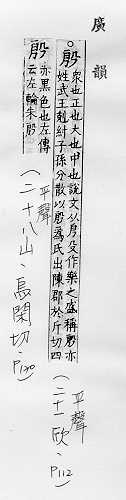 廣韻
。殷
衆也正也大也中也說文从㐆殳作樂之盛稱殷亦
姓武王剋紂子孫分散以殷爲氏出陳郡於斤切四
（平聲
二十一欣、P112）
殷
亦黑色也左傳
云左輪朱殷
（平聲
二十八山、烏閑切、P130）